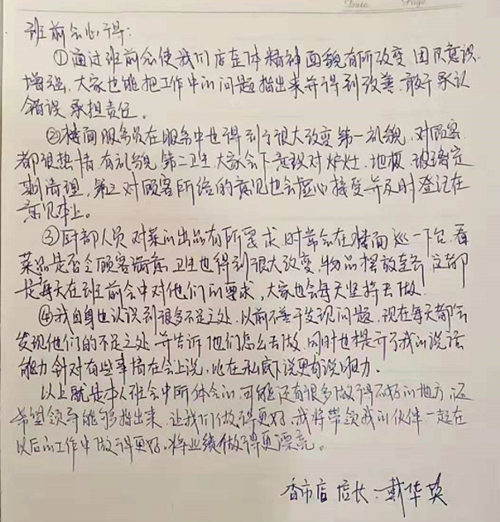 班前会心得:
①通过班前会使我们店在整体精神面貌有所改变 团队意识
增强,大家也能把工作中的问题指出来并得到改善,敢于承认
错误 承担责任。
②楼面服务员在服务中也得到了很大改变 第一礼貌,对顾客
都很热情 有礼貌 第二卫生 大家会下意识对炉灶、地板、玻璃定
期清理,第三对顾客所给的意见也会虚心接受并及时登记在
意见本上。
③厨部人员对菜的出品有所要求 时常会在楼面巡一下台,看
菜品是否令顾客满意 卫生也得到很大改变,物品摆放在 这都
是每天在班前会中对他们的要求,大家也会每天坚持去做。
④我自身也认识到很多不足之处,以前不善于发现问题,现在每天都会
发现他们的不足之处并告诉他们怎么去做 同时也提升了我的说话
能力 针对有些事情在会上说,比在私底下说更有说服力。
以上就是本人班会中所体会的,可能还有很多做得不好的地方,还
希望领导能够指出来,让我们做得更好,我将带领我的伙伴一起在
以后的工作中做得更好,将业绩做得更漂亮。
香市店 店长:戴华英